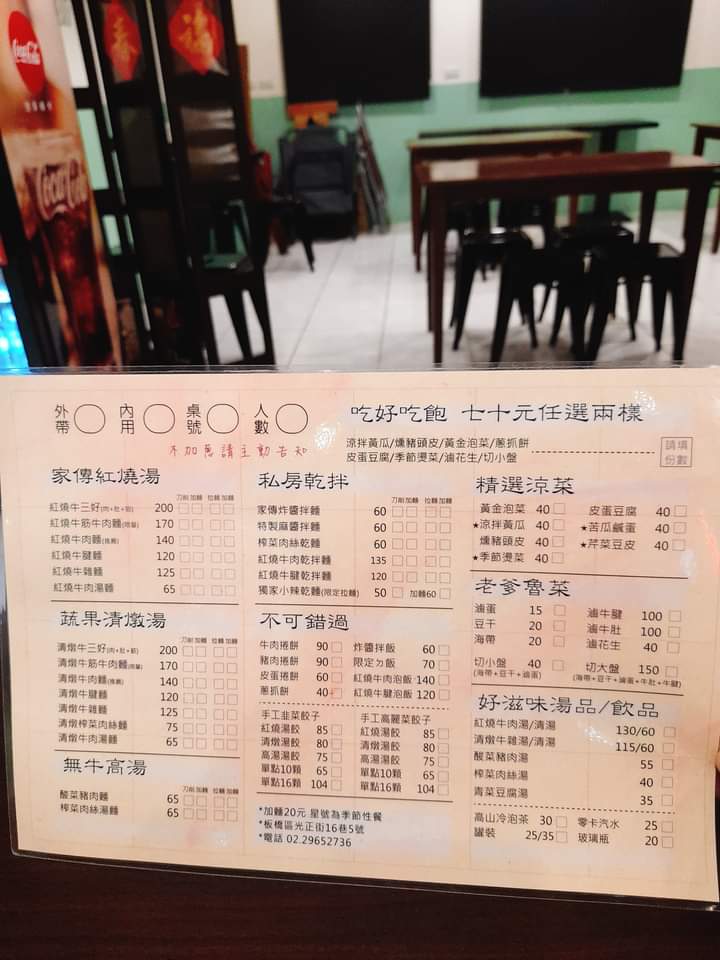 Coca-Cola
春
福
Coca-Cola
外帶 內用 桌號 人數
不加蔥請主動告知
吃好吃飽 七十元任選兩樣
涼拌黃瓜/燻豬頭皮/黃金泡菜/蔥抓餅
皮蛋豆腐/季節燙菜/滷花生/切小盤
請填份數
家傳紅燒湯
刀削 加麵 拉麵 加麵
紅燒牛三好(肉+肚+筋) 200
紅燒牛筋牛肉麵(限量) 170
紅燒牛肉麵(推薦) 140
紅燒牛腱麵 120
紅燒牛雜麵 125
紅燒牛肉湯麵 65
蔬果清燉湯
刀削 加麵 拉麵 加麵
清燉牛三好(肉+肚+筋) 200
清燉牛筋牛肉麵(限量) 170
清燉牛肉麵(推薦) 140
清燉牛腱麵 120
清燉牛雜麵 125
清燉榨菜肉絲麵 75
清燉牛肉湯麵 65
無牛高湯
刀削 加麵 拉麵 加麵
酸菜豬肉湯麵 65
榨菜肉絲湯麵 65
私房乾拌
刀削 加麵 拉麵 加麵
家傳炸醬拌麵 60
特製麻醬拌麵 60
榨菜肉絲乾麵 60
紅燒牛肉乾拌麵 135
紅燒牛腱乾拌麵 120
獨家小辣乾麵(限定拉麵) 50 加麵60
不可錯過
牛肉捲餅 90 炸醬拌飯 60
豬肉捲餅 90 限定ㄉ飯 70
皮蛋捲餅 60 紅燒牛肉泡飯 140
蔥抓餅 40 紅燒牛腱泡飯 120
手工韭菜餃子 手工高麗菜餃子
紅燒湯餃 85 紅燒湯餃 85
清燉湯餃 80 清燉湯餃 80
高湯湯餃 75 高湯湯餃 75
單點10顆 65 單點10顆 65
單點16顆 104 單點16顆 104
*加麵20元 星號為季節性餐
*板橋區光正街16巷5號
*電話 02.29652736
精選涼菜
黃金泡菜 40 皮蛋豆腐 40
★涼拌黃瓜 40 ★苦瓜鹹蛋 40
燻豬頭皮 40 ★芹菜豆皮 40
★季節燙菜 40
老爹魯菜
滷蛋 15 滷牛腱 100
豆干 20 滷牛肚 100
海帶 20 滷花生 40
切小盤 40 切大盤 150
(海帶+豆干+滷蛋) (海帶+豆干+滷蛋+牛肚+牛腱)
好滋味湯品/飲品
紅燒牛肉湯/清湯 130/60
清燉牛雜湯/清湯 115/60
酸菜豬肉湯 55
榨菜肉絲湯 40
青菜豆腐湯 35
高山冷泡茶 30 零卡汽水 25
罐裝 25/35 玻璃瓶 20